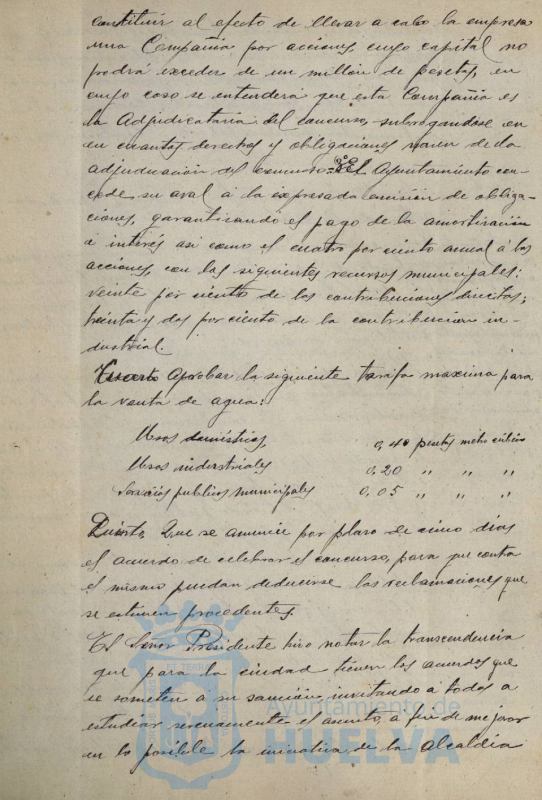 constituir al efecto de llevar a cabo la empresa
una Compañia por acciones, cuyo capital no
podrá exceder de un millón de pesetas, en
cuyo caso se entenderá que esta Compañia es
la Adjudicataria del concurso, subrogandose en
en cuantos derechos y obligaciones nacen de la
adjudicación del concurso. El Ayuntamiento con-
cede su aval á la expresada emisión de obliga-
ciones, garantizando el pago de la amortización
é interés asi como el cuatro por ciento anual á las
acciones, con los siguientes recursos municipales:
veinte por ciento de las contribuciones directas;
treinta y dos por ciento de la contribucion in-
dustrial.
Cuarto Aprobar la siguiente tarifa maxima para
la venta de agua:
Usos domésticos, 0,40 pesetas metro cubico
Usos industriales 0,20 " " "
Servicios publicos municipales 0,05 " " "
Quinto, Que se anuncie por plazo de cinco dias
el acuerdo de celebrar el concurso, para que contra
el mismo puedan deducirse las reclamaciones que
se estimen procedentes.
El Señor Presidente hizo notar la transcendencia
que para la ciudad tienen los acuerdos que
se someten á su sanción, invitando á todos a
estudiar serenamente el asunto, a fin de mejorar
en lo posible la iniciativa de la Alcaldia
Ayuntamiento de
HUELVA